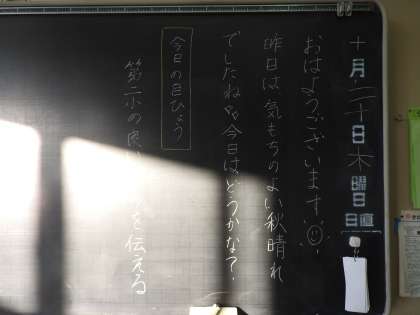 十月二十日木曜日
日直
おはようございます
昨日は気もちのよい秋晴れ
でしたね今日はどうかな?
今日の目ひょう
第二小の良い を伝える